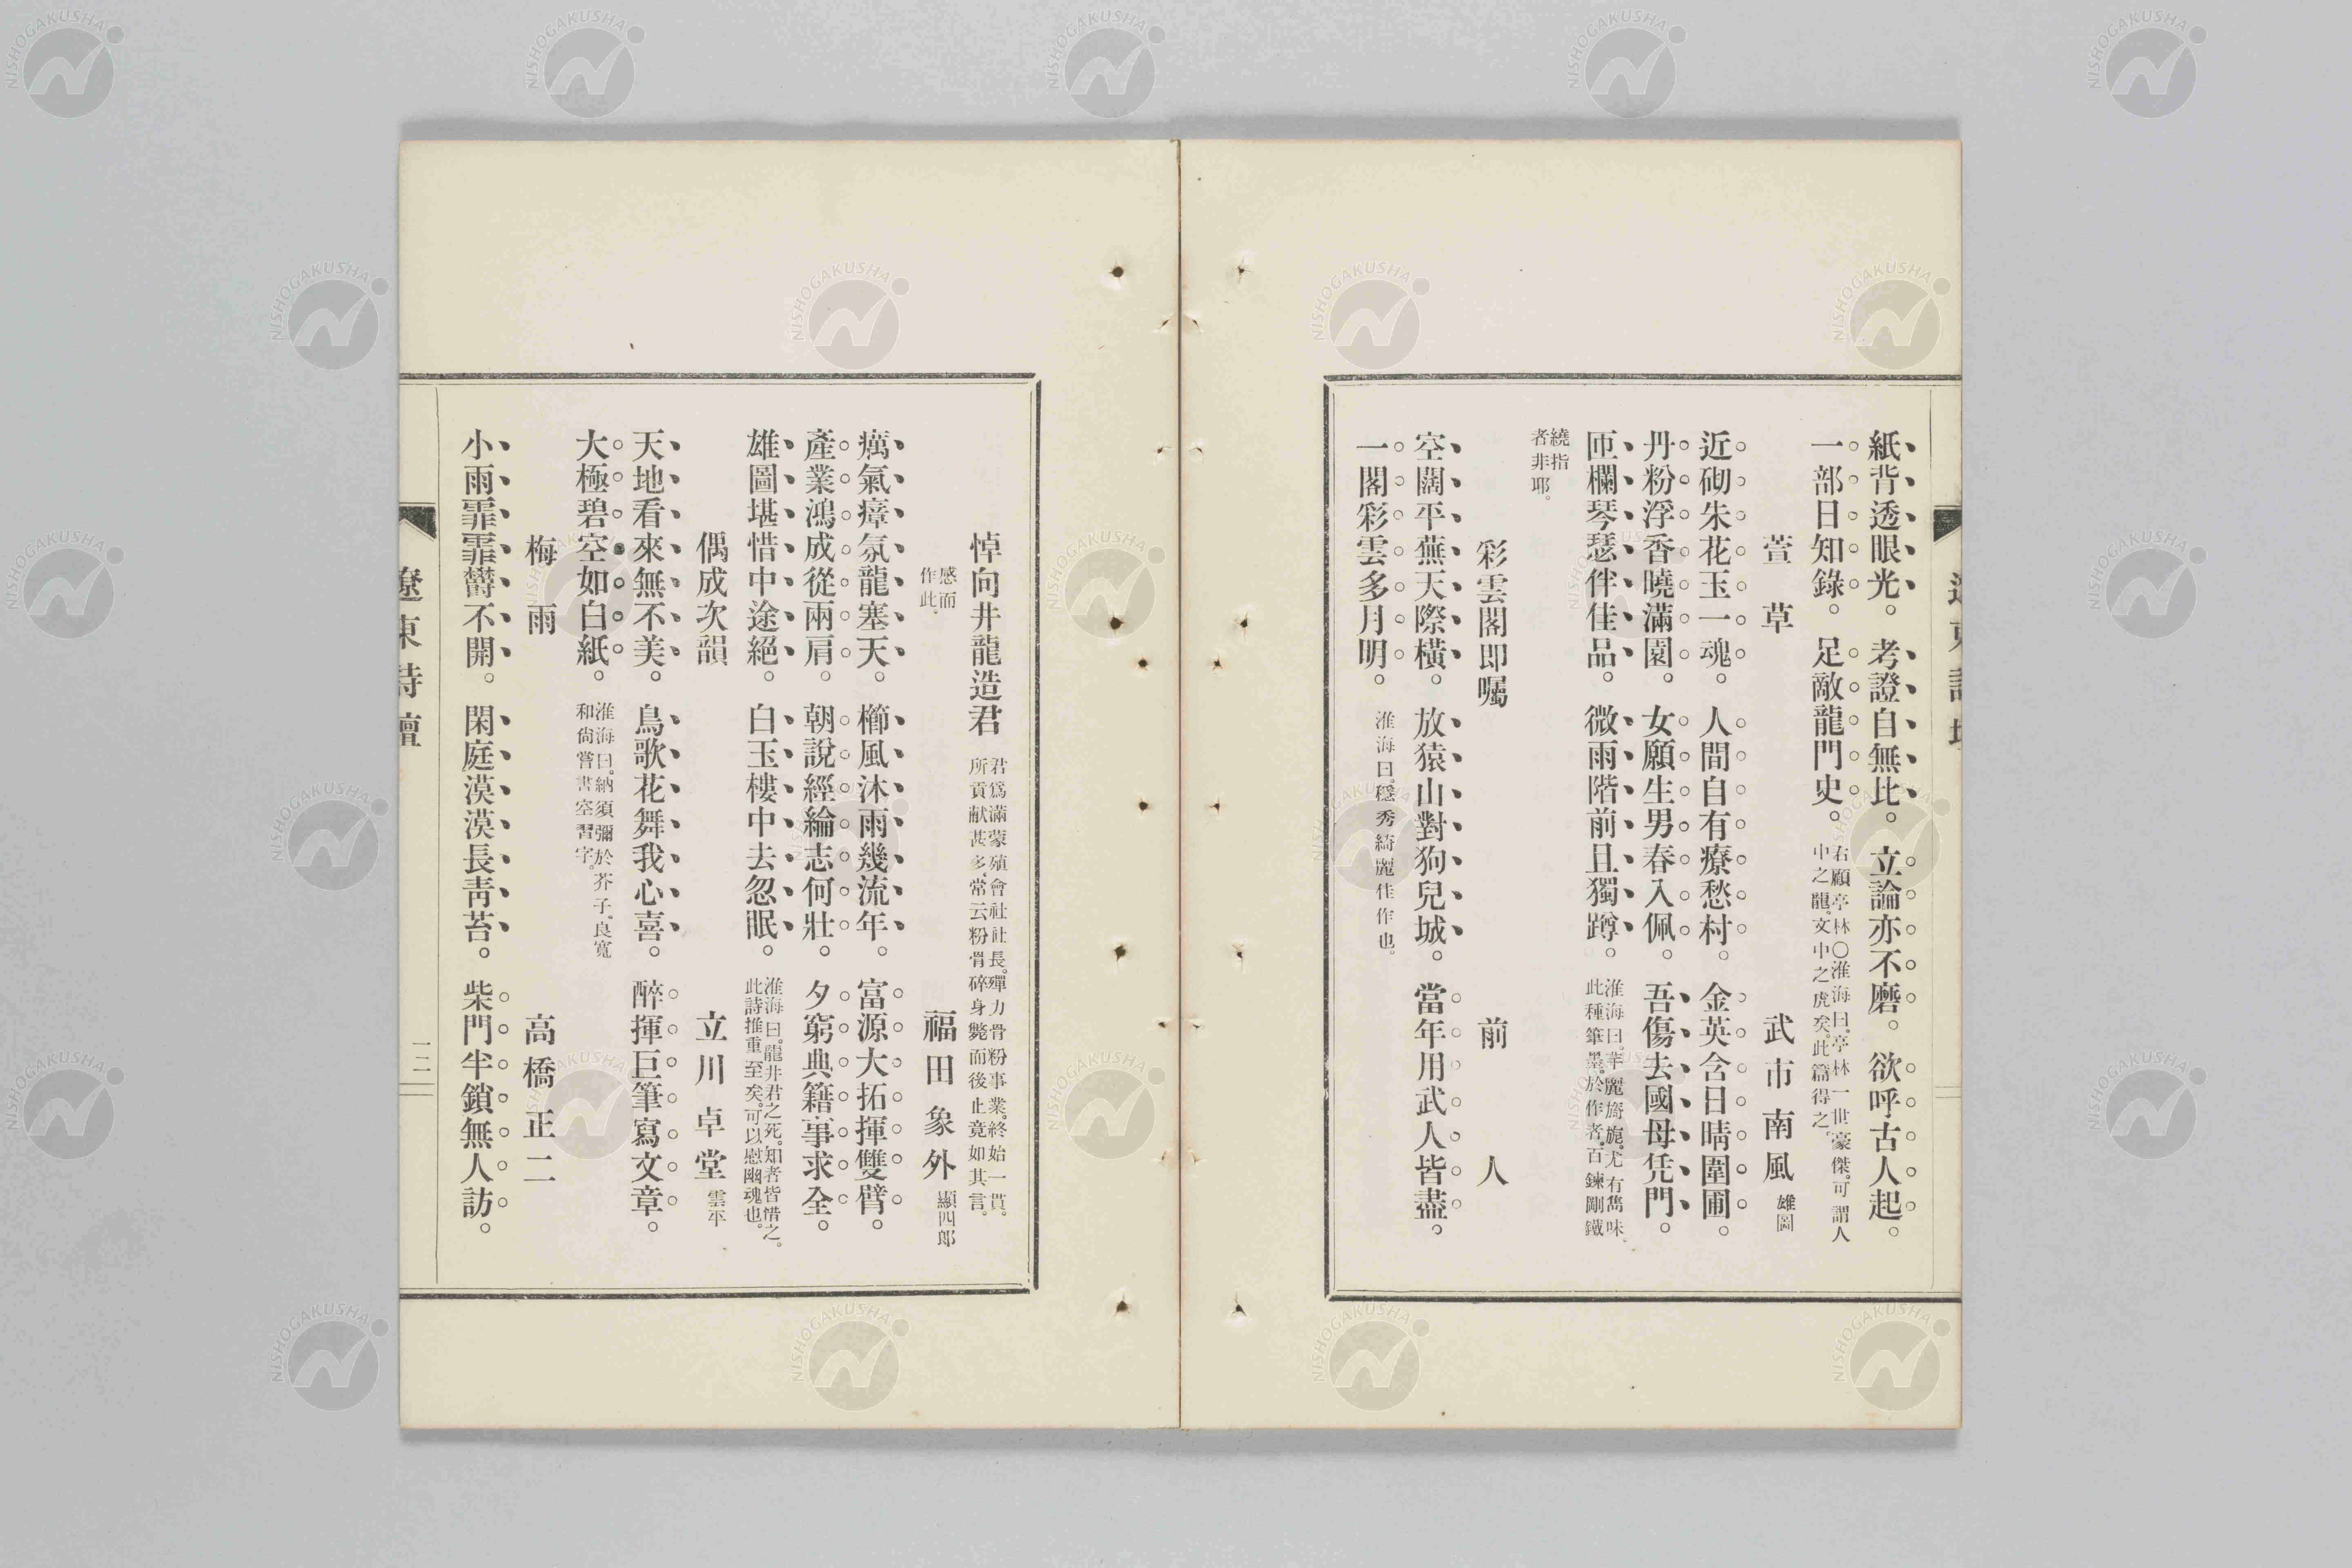 紙背透眼光。考證自無比。立論亦不磨。欲呼古人起。
一部日知錄。足敵龍門史。右顧亭林〇淮海曰。亭林一世豪傑。可謂人
中之龍。文中之虎矣。此篇得之。
萱草 武市南風 雄圖
近砌朱花玉一魂。人間自有療愁村。金英含日晴圍圃。
丹粉浮香曉滿園。女願生男春入佩。吾傷去國母凭門。
匝欄琴瑟伴佳品。微雨階前且獨蹲。淮海曰。華麗旖旎。尤有雋味
此種筆墨。於作者。百鍊剛鐵
繞指
者非耶。
彩雲閣即囑 前人
空闊平蕪天際橫。放猿山對狗兒城。當年用武人皆盡。
一閣彩雲多月明。淮海曰。穩秀綺麗佳作也。
悼向井龍造君 君爲滿蒙殖會社社長。殫力骨粉事業。終始一貫。
所貢献甚多。常云粉骨碎身斃而後止竟如其言。
感而
作此。 福田象外 顯四郎
癘氣瘴氛龍塞天。櫛風沐雨幾流年。富源大拓揮雙臂。
產業鴻成從兩肩。朝說經綸志何壯。夕窮典籍事求全。
雄圖堪惜中途絕。白玉樓中去忽眠。淮海曰。龍井君之死。知者皆惜之。
此詩推重至矣。可以慰幽魂也。
偶成次韻 立川卓堂 雲平
天地看來無不美。鳥歌花舞我心喜。醉揮巨筆寫文章。
大極碧空如白紙。淮海曰。納須彌於芥子。良寬
和尙嘗書空習字。
梅雨 高橋正二
小雨霏霏鬱不開。閑庭漠漠長靑苔。柴門半鎖無人訪。
遼東詩壇
一二
NISHOGAKUSHA